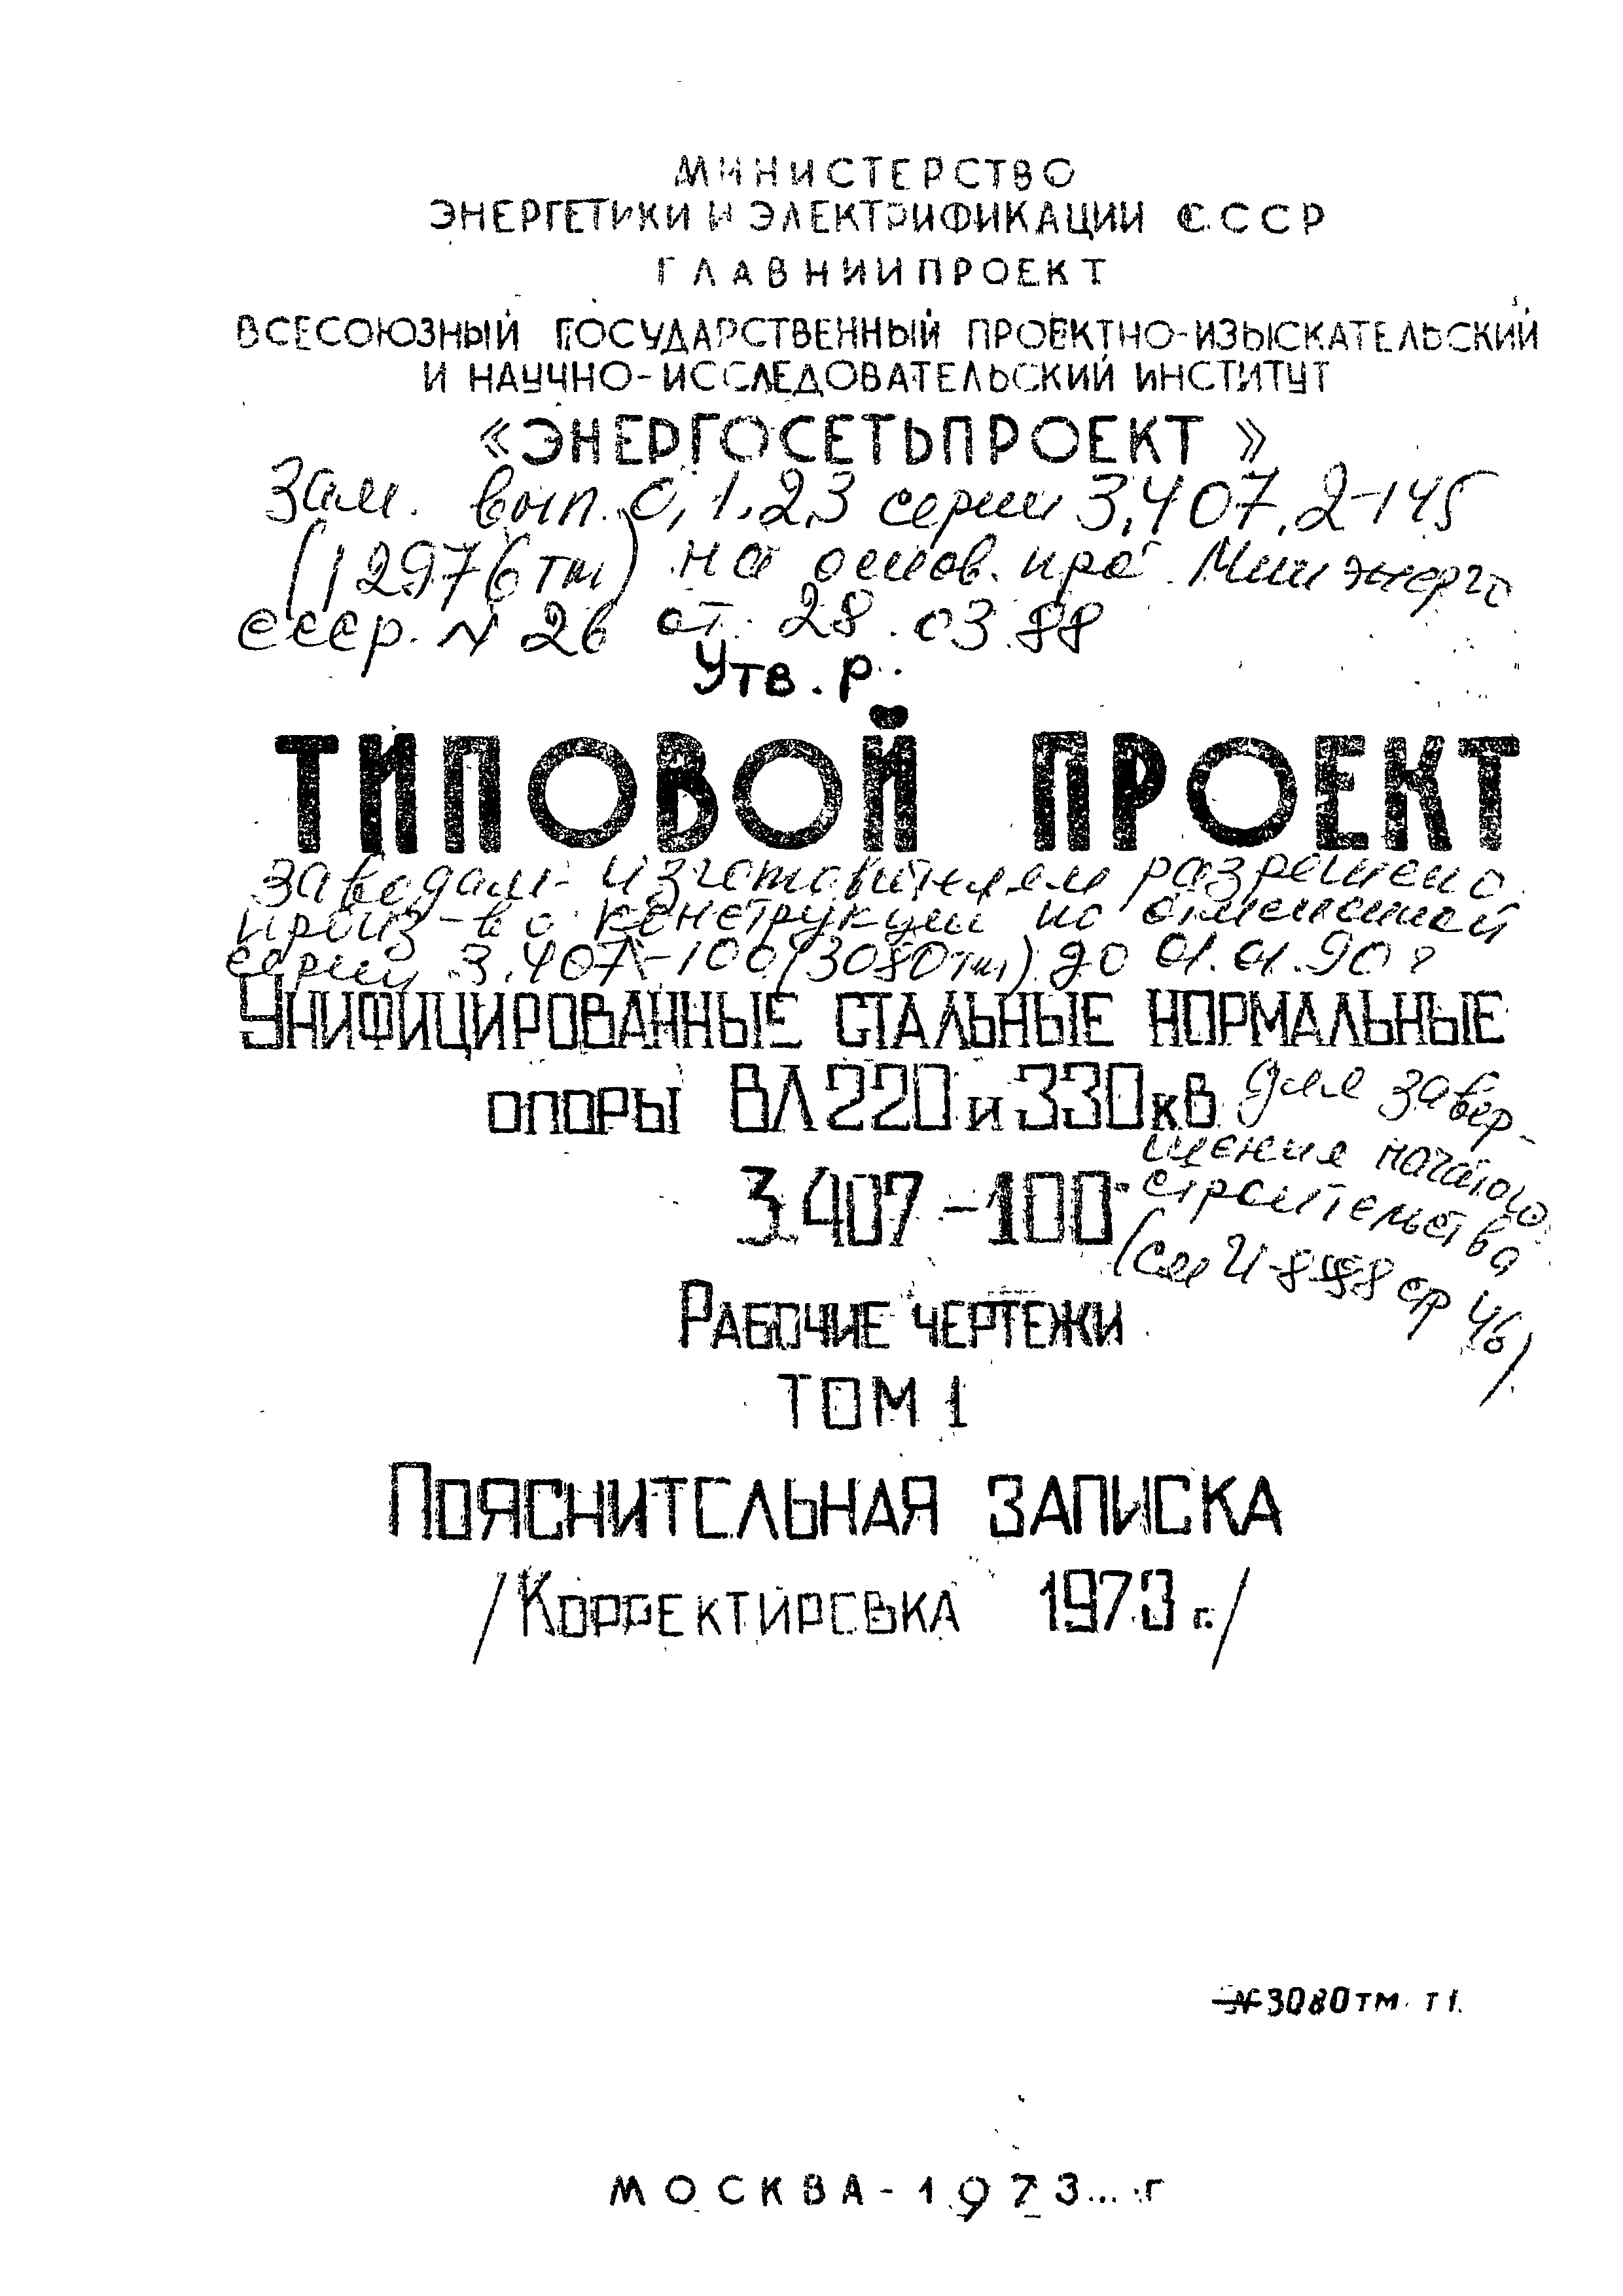 МИНИСТЕРСТВО
ЭНЕРГЕТИКИ И ЭЛЕКТРИФИКАЦИИ СССР
ГЛАВНИИПРОЕКТ
ВСЕСОЮЗНЫЙ ГОСУДАРСТВЕННЫЙ ПРОЕКТНО-ИЗЫСКАТЕЛЬСКИЙ
И НАУЧНО-ИССЛЕДОВАТЕЛЬСКИЙ ИНСТИТУТ
«ЭНЕРГОСЕТЬПРОЕКТ»
Зам. вып. 0,1,2,3 серии 3.407.2-145
(12976тм) на основ. Минэнерго
ссср. N 26 от 28.03.88
Утв. р.
ТИПОВОЙ ПРОЕКТ
заводам-изготовителям разрешено
произ-во конструкций по отмененной
серии 3.407-100 (3080тм) до 01.01.90г
УНИФИЦИРОВАННЫЕ СТАЛЬНЫЕ НОРМАЛЬНЫЕ
ОПОРЫ ВЛ 220 и 330 кВ для завер-
шения начатого
3.407-100 строительства
(см И-8-88 ср 46)
РАБОЧИЕ ЧЕРТЕЖИ
ТОМ 1
ПОЯСНИТЕЛЬНАЯ ЗАПИСКА
/КОРРЕКТИРОВКА 1973 г./
№3080тм т1.
МОСКВА-1973... г